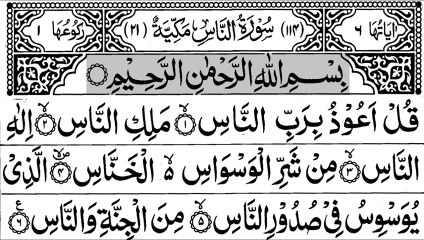 اٰيَاتُهَا ٦ (١١٤) سُوْرَةُ النَّاسِ مَكِّيَّةٌ (٢١) رُكُوْعُهَا ١
بِسْمِ اللّٰهِ الرَّحْمٰنِ الرَّحِيْمِ
قُلْ اَعُوْذُ بِرَبِّ النَّاسِ ۙ﴿١﴾ مَلِكِ النَّاسِ ۙ﴿٢﴾ اِلٰهِ
النَّاسِ ۙ﴿٣﴾ مِنْ شَرِّ الْوَسْوَاسِ ۙ۬ الْخَنَّاسِ ۪ۙ﴿٤﴾ الَّذِيْ
يُوَسْوِسُ فِيْ صُدُوْرِ النَّاسِ ۙ﴿٥﴾ مِنَ الْجِنَّةِ وَالنَّاسِ ﴿٦﴾